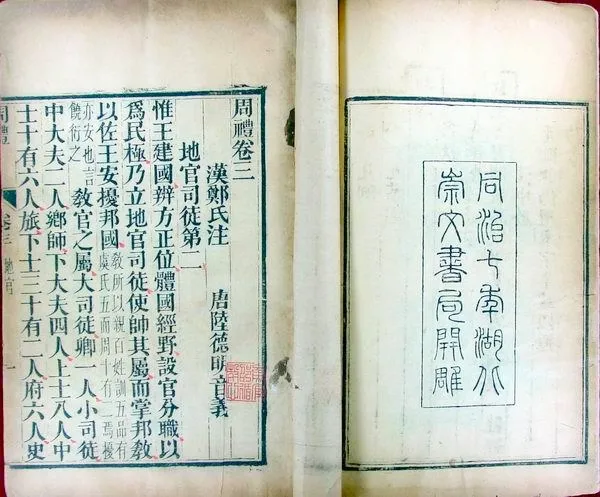 同治七年湖北
崇文書局開雕
周禮卷三
漢鄭氏注 唐陸德明音義
地官司徒第二
惟王建國辨方正位體國經野設官分職以
為民極乃立地官司徒使帥其屬而掌邦敎
以佐王安擾邦國敎所以親百姓訓五品有虞氏五而周十有二焉擾
亦安也言饒衍之敎官之屬大司徒卿一人小司徒
中大夫二人鄉師下大夫四人上士八人中
士十有六人旅下士三十有二人府六人史
卷三 地官